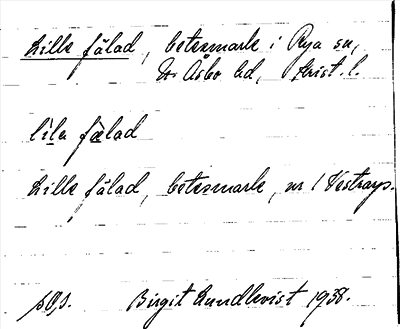 Lille fälad, betesmark i Rya sn,
N. Åsbo hd, Krist. l.
lila fälad
Lille fälad, betesmark, nr 1 Vestrarp.
Birgit Lundkvist 1938.